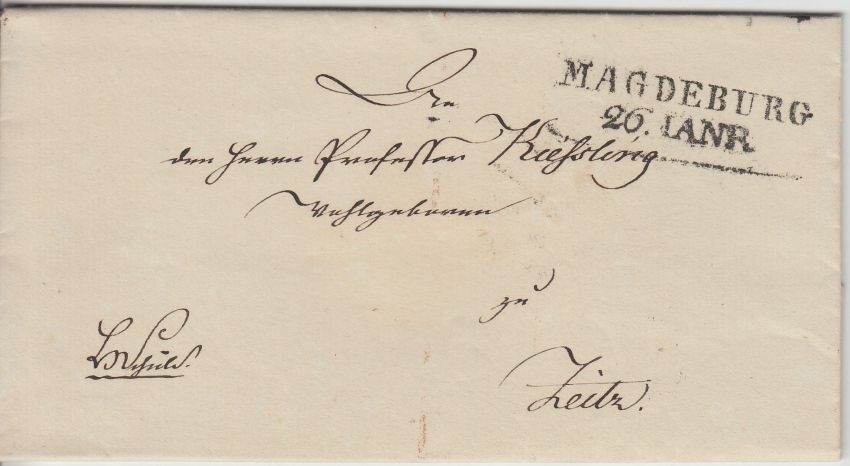 MAGDEBURG
26. IANR
An
den Herrn Professor Kiessling
Wohlgeboren
zu
Zeitz.